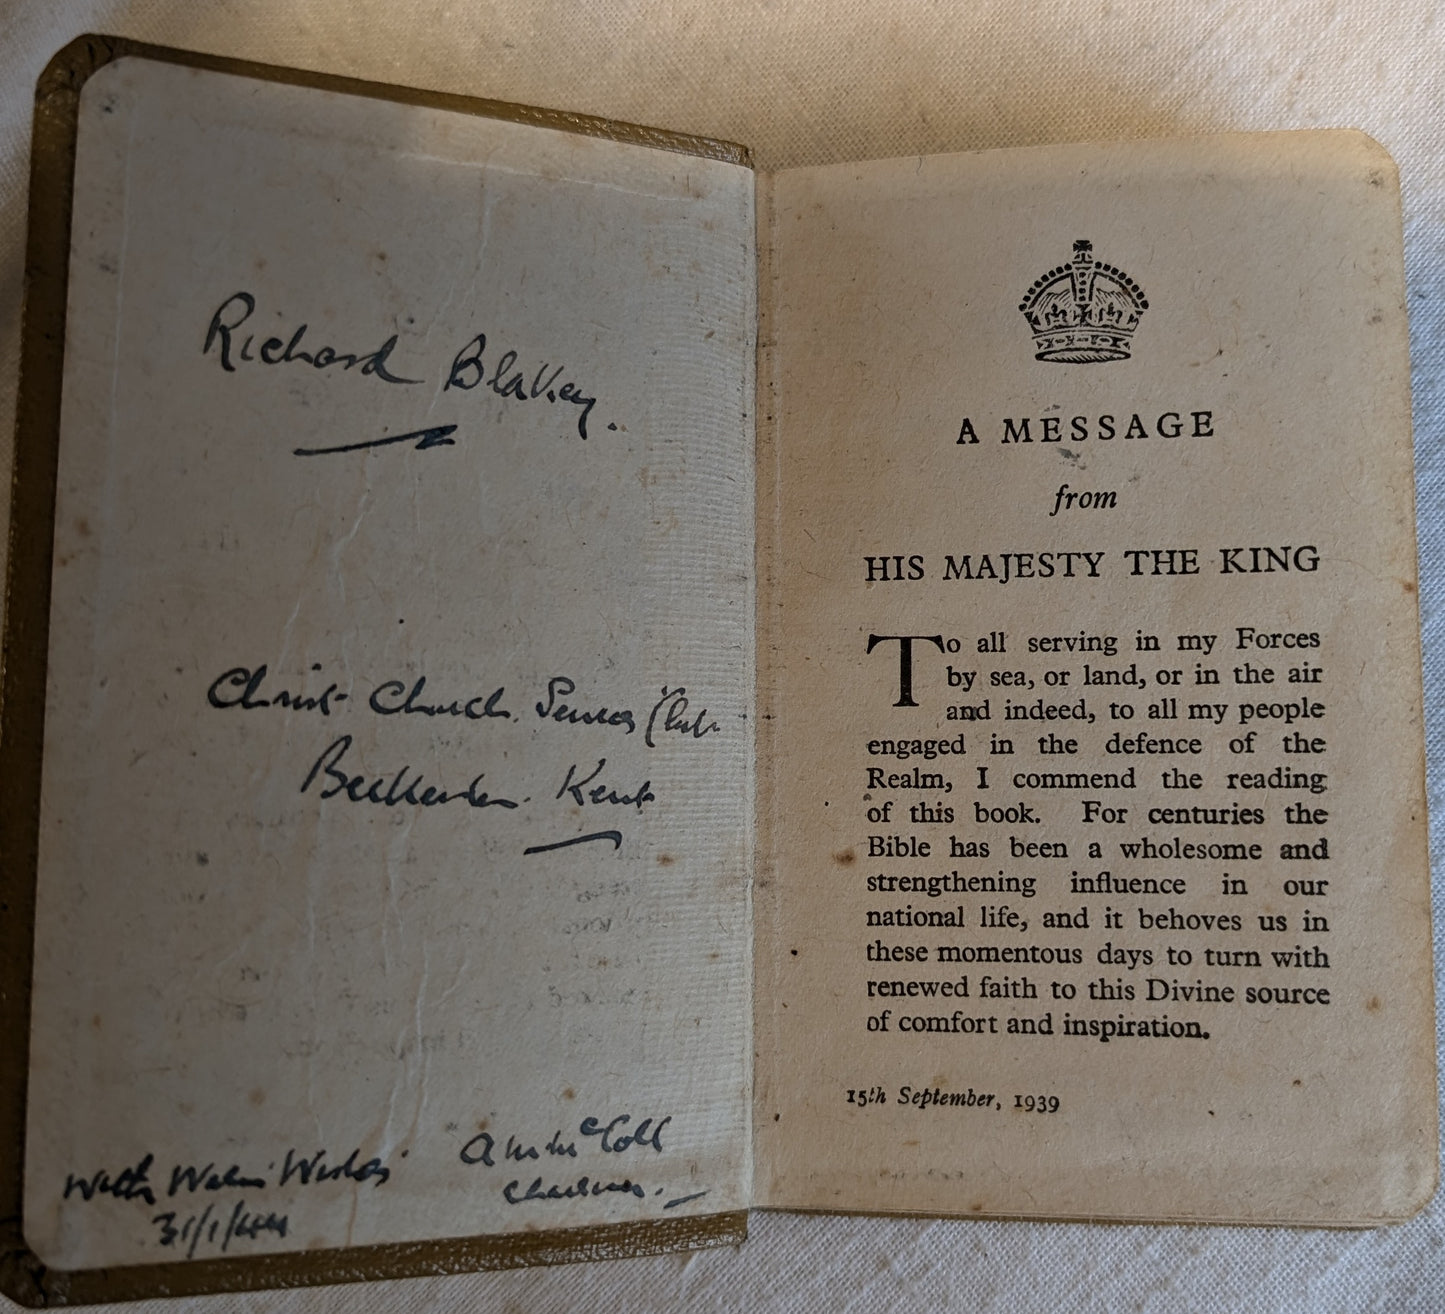 Richard Blakey.
Christ Church Senior Club
Beckenham. Kent
With Warm Wishes
31/1/44
McColl
Chairman.
A MESSAGE
from
HIS MAJESTY THE KING
To all serving in my Forces
by sea, or land, or in the air
and indeed, to all my people
engaged in the defence of the
Realm, I commend the reading
of this book. For centuries the
Bible has been a wholesome and
strengthening influence in our
national life, and it behoves us in
these momentous days to turn with
renewed faith to this Divine source
of comfort and inspiration.
15th September, 1939